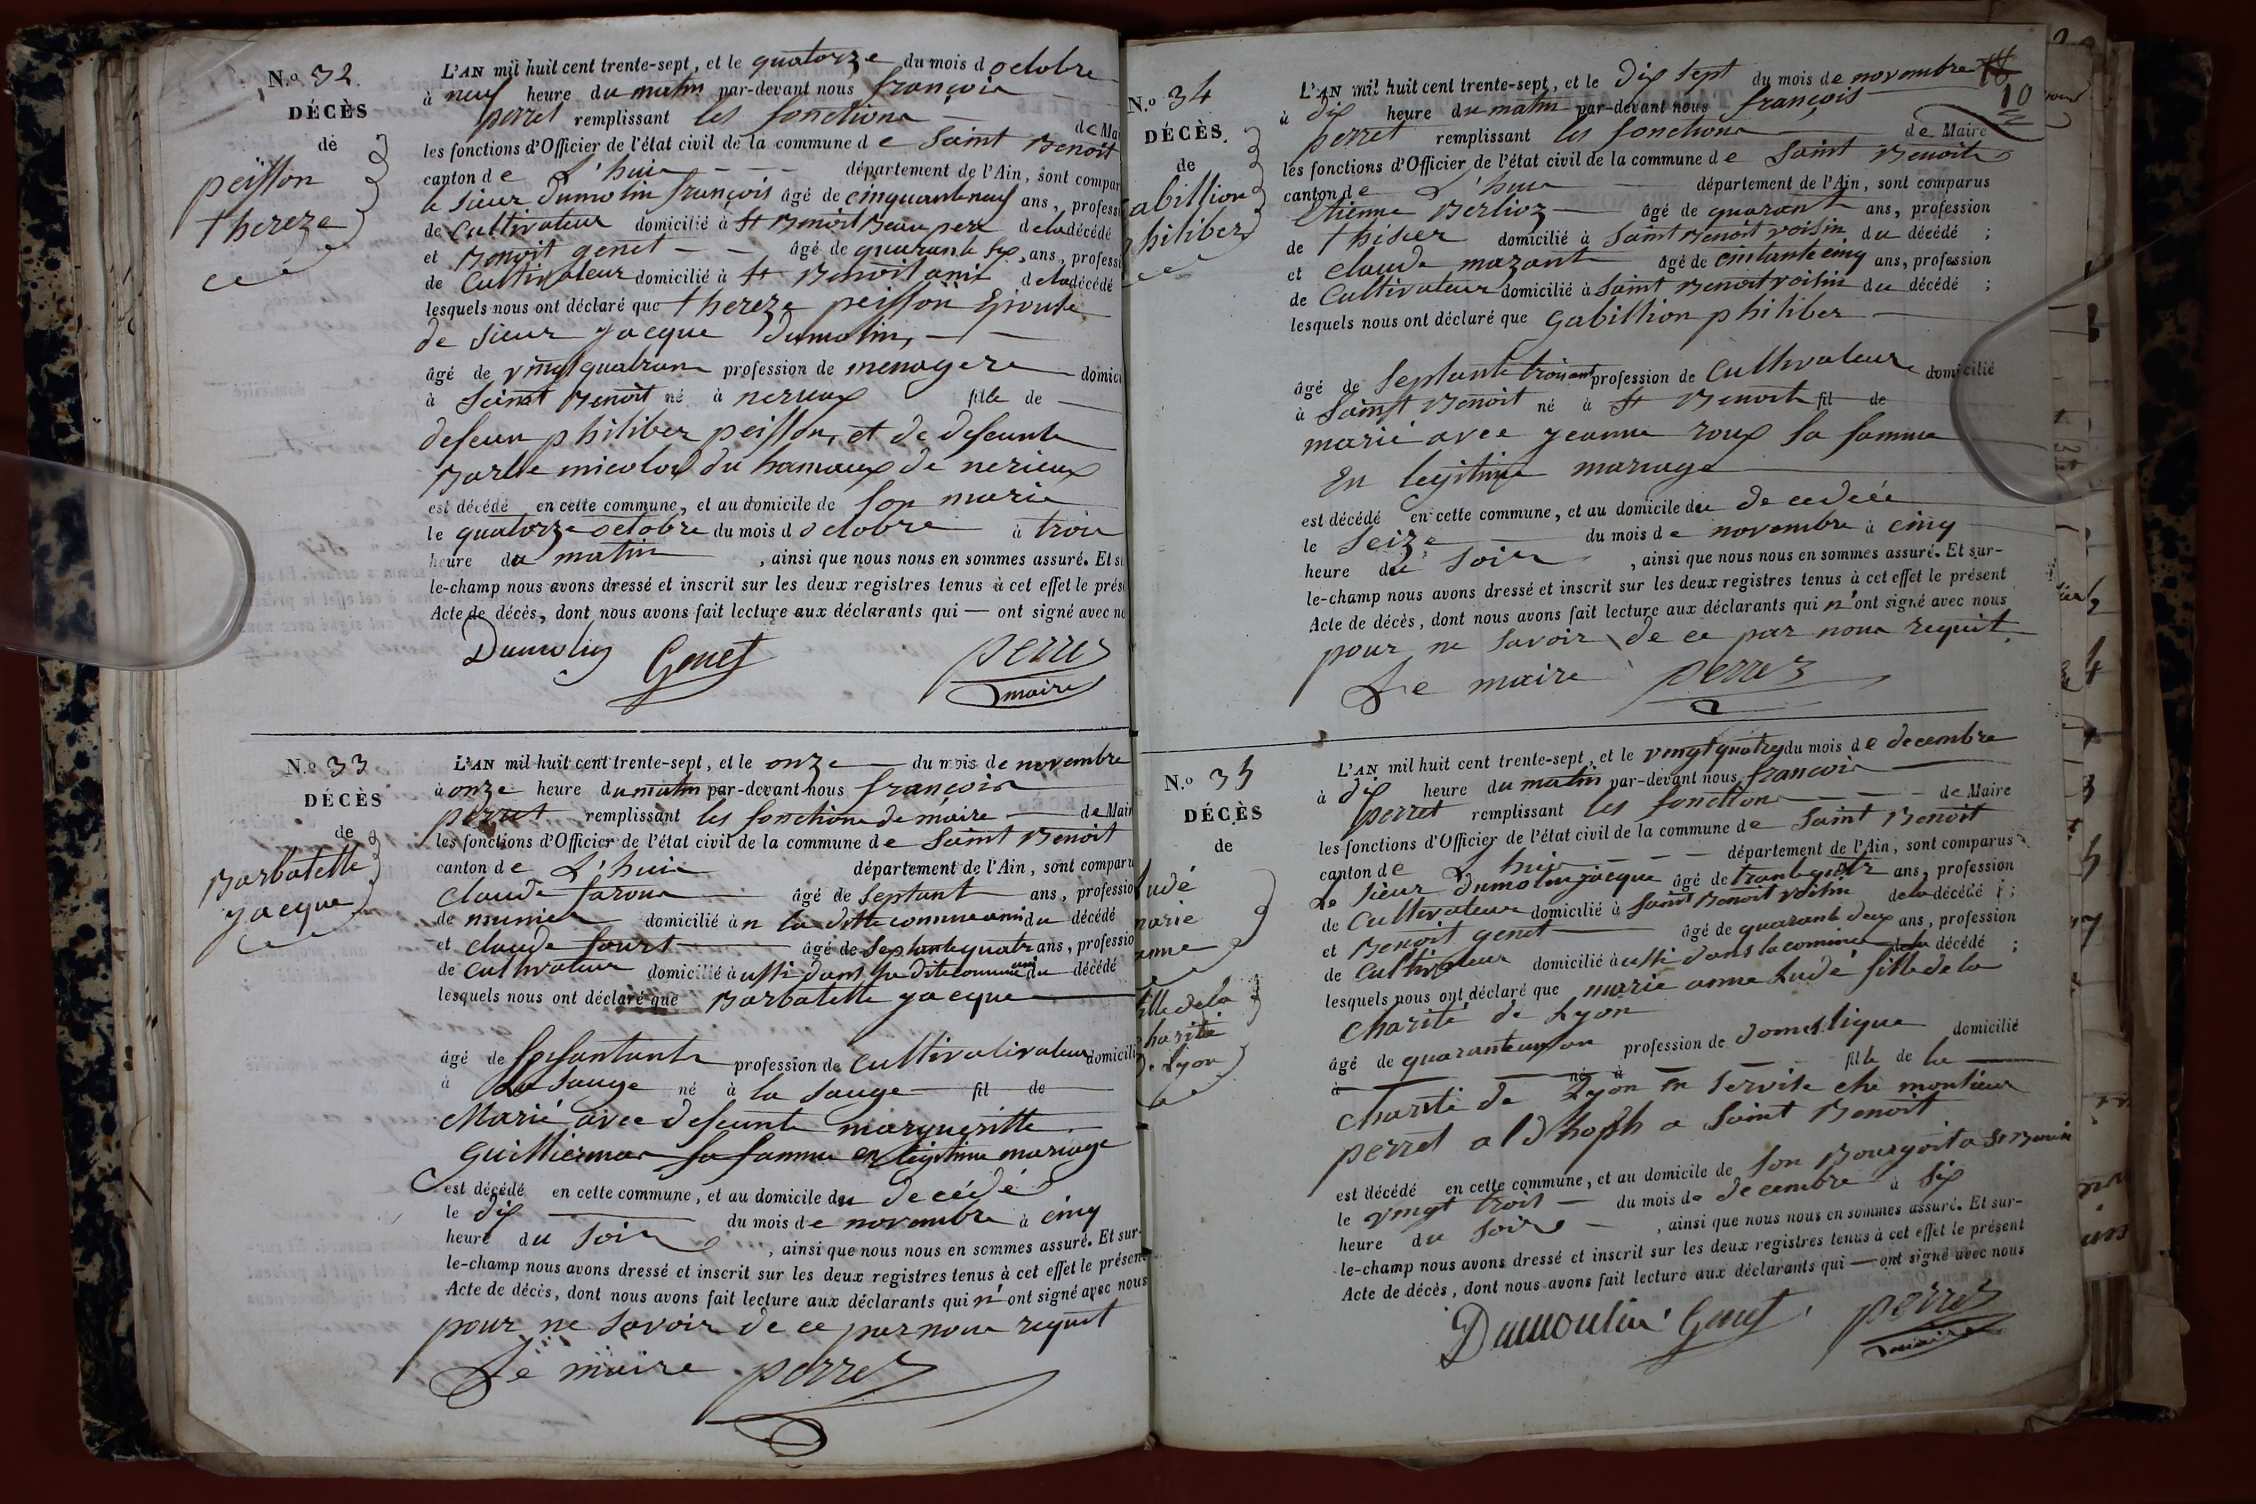 N.o 32.
DÉCÈS
de
peisson
thereze
L'AN mil huit cent trente-sept, et le quatorze du mois d octobre
à neuf heure du matin par-devant nous françois
perret remplissant les fonctions de Mai
les fonctions d'Officier de l'état civil de la commune d e Saint Benoit
canton d e L'huis département de l'Ain, sont compar
le sieur Dumolin françois âgé de cinquanteneuf ans, professi
de Cultivateur domicilié à St Benoit Beau pere de la décédé
et Benoit genet âgé de quarante six ans, professi
de Cultivateur domicilié à St Benoit ami de la décédé
lesquels nous ont déclaré que thereze peisson Epouse
de sieur jacque Dumolin,
âgé de vingt quatr ans profession de menagere domici
à Saint Benoit né à nerieux fille de
defeun philiber peisson, et de defeunte
Barbe micoloud du hamaux de nerieux
est décédé en cette commune, et au domicile de son marie
le quatorze octobre du mois d octobre à trois
heure du matin, ainsi que nous nous en sommes assuré. Et s
le-champ nous avons dressé et inscrit sur les deux registres tenus à cet effet le prés
Acte de décès, dont nous avons fait lecture aux déclarants qui — ont signé avec no
Dumolin Genet perret
maire
N.o 33
DÉCÈS
de
Barbatette
jacque
L'AN mil huit cent trente-sept, et le onze du mois de novembre
à onze heure du matin par-devant nous françois
perret remplissant les fonctions de maire de Mair
les fonctions d'Officier de l'état civil de la commune d e Saint Benoit
canton d e L'huis département de l'Ain, sont comparu
Claude âgé de Septant ans, professio
de munier domicilié à n la ditte commune ami du décédé
et Claude âgé de Septante quatr ans, professio
de Cultivateur domicilié à ussi dans la dite commune ami du décédé
lesquels nous ont déclaré que Barbatette jacque
âgé de profession de Cultivativateur domicili
à La Sauge né à la Sauge fil de
Marié avec defeunte margueritte
Guilliermar sa famme en legitime mariage
est décédé en cette commune, et au domicile du decédé
le dix du mois d e novembre à cinq
heure du Soir, ainsi que nous nous en sommes assuré. Et sur-
le-champ nous avons dressé et inscrit sur les deux registres tenus à cet effet le présen
Acte de décès, dont nous avons fait lecture aux déclarants qui n'ont signé avec nous
pour ne savoir de ce par nous requit
Le maire perret
N.o 34
DÉCÈS
de
abillion
hiliber
L'AN mil huit cent trente-sept, et le dix sept du mois de novembre
10
à dix heure du matin par-devant nous françois
perret remplissant les fonctions de Maire
les fonctions d'Officier de l'état civil de la commune d e Saint Benoit
canton d e L'huis département de l'Ain, sont comparus
Etienne Berlioz âgé de quarant ans, profession
de thisier domicilié à Saint Benoit voisin du décédé ;
et Claude mazant âgé de cintante cinq ans, profession
de Cultivateur domicilié à Saint Benoit voisin du décédé ;
lesquels nous ont déclaré que Gabillion philiber
âgé de Septante trois ant profession de Cultivateur domicilié
à Saint Benoit né à St Benoit fil de
marié avec jeanne roux sa famme
En legitime mariage
est décédé en cette commune, et au domicile du decedée
le Seize du mois d e novembre à cinq
heure du Soir, ainsi que nous nous en sommes assuré. Et sur-
le-champ nous avons dressé et inscrit sur les deux registres tenus à cet effet le présent
Acte de décès, dont nous avons fait lecture aux déclarants qui n'ont signé avec nous
pour ne savoir de ce par nous requit
Le maire perret
N.o 35
DÉCÈS
de
Ludé
marie
anne
ille de la
harité
De Lyon
L'AN mil huit cent trente-sept, et le vingt quatre du mois d e decembre
à dix heure du matin par-devant nous françois
perret remplissant les fonctions de Maire
les fonctions d'Officier de l'état civil de la commune d e Saint Benoit
canton d e L'huis département de l'Ain, sont comparus
Le Sieur Dumolin jacque âgé de trante quatr ans, profession
de Cultivateur domicilié à Saint Benoit voisin de la décédé ;
et Benoit genet âgé de quarante deux ans, profession
de Cultivateur domicilié à ussi dans la comine de la décédé ;
lesquels nous ont déclaré que marie anne Ludé fille de la
charité de Lyon
âgé de quarante un an profession de domestique domicilié
à né à fille de la
charité de Lyon en servise ché monsieur
perret aldhoph a Saint Benoit
est décédé en cette commune, et au domicile de son Bourgoit a St Benoit
le vingt trois du mois de decembre à six
heure du soir, ainsi que nous nous en sommes assuré. Et sur-
le-champ nous avons dressé et inscrit sur les deux registres tenus à cet effet le présent
Acte de décès, dont nous avons fait lecture aux déclarants qui — ont signé avec nous
Dumoulin Genet perret
maire